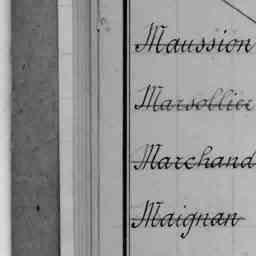 Maussion
Marsollier
Marchand
Maignan